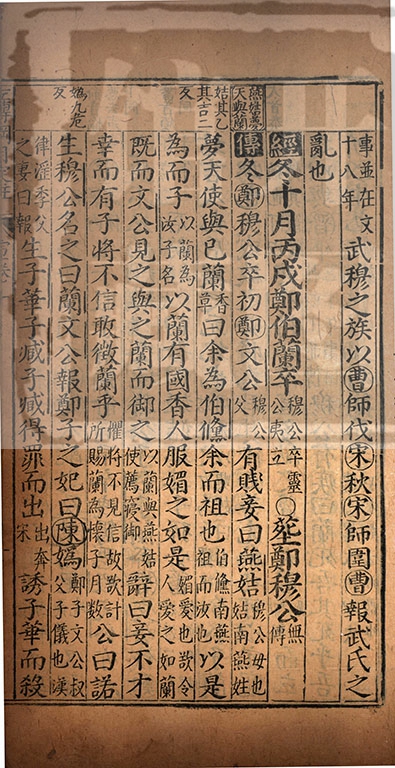 事並在文十八年武穆之族以曹師伐宋秋宋師圍曹報武氏之
亂也
經冬十月丙戌鄭伯蘭卒穆公卒靈公夷立〇塟鄭穆公無傳
燕姞夢天與蘭
傳冬鄭穆公卒初鄭文公穆公父有賤妾曰燕姞穆公母也姞南燕姓
姞其乙其吉二反
夢天使與已蘭香草曰余為伯鯈余而祖也伯鯈南燕祖而汝也以是
為而子以蘭為汝子名以蘭有國香人服媚之如是媚愛也欲令人愛之如蘭
既而文公見之與之蘭而御之以蘭與燕姞使薦寢御辭曰妾不才
幸而有子將不信敢徵蘭乎懼將不見信故欲計所賜蘭為懷子月数公曰諾
媯九危反
生穆公名之曰蘭文公報鄭子之妃曰陳媯鄭子文公叔父子儀也漢
律淫季父之妻曰報生子華子臧子臧得罪而出出奔宋誘子華而殺